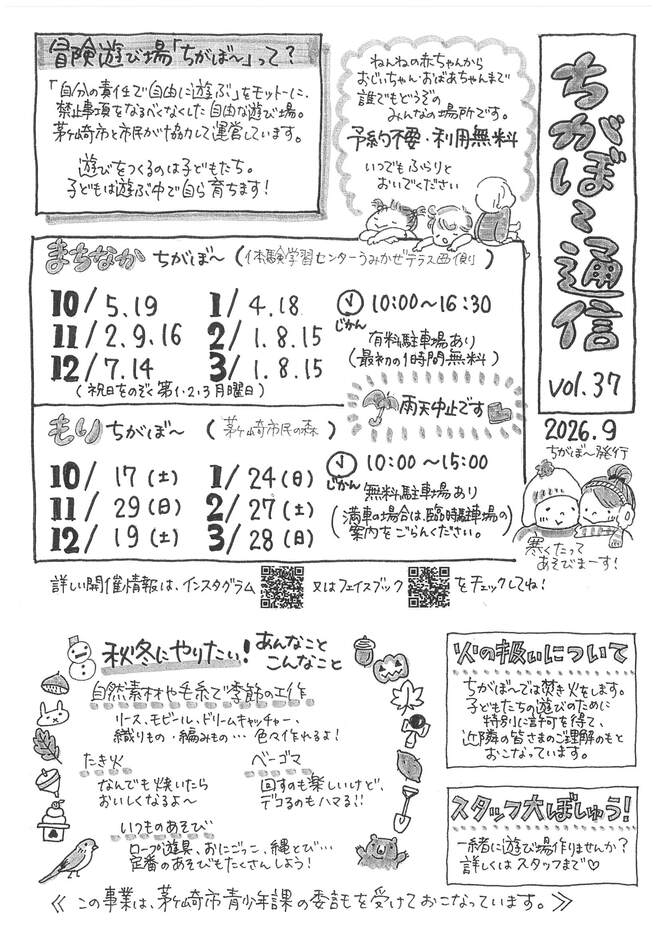 冒険遊び場「ちがぼ〜」って？
「自分の責任で自由に遊ぶ」をモットーに、
禁止事項をなるべくなくした自由な遊び場。
茅ヶ崎市と市民が協力して運営しています。
遊びをつくるのは子どもたち。
子どもは遊ぶ中で自ら育ちます！
ねんねの赤ちゃんから
おじいちゃん・おばあちゃんまで
誰でもどうぞの
みんなの場所です。
予約不要・利用無料
いつでもふらりと
おいでください
ちがぼ〜通信
vol.37
2026.9
ちがぼ〜発行
まちなか ちがぼ〜（体験学習センターうみかぜテラス西側）
10/ 5.19
11/ 2.9.16
12/ 7.14
1/ 4.18
2/ 1.8.15
3/ 1.8.15
（祝日をのぞく第1・2・3月曜日）
じかん 10:00〜16:30
有料駐車場あり
（最初の1時間無料）
雨天中止です
もり ちがぼ〜（茅ヶ崎市民の森）
10/ 17（土）
11/ 29（日）
12/ 19（土）
1/ 24（日）
2/ 27（土）
3/ 28（日）
じかん 10:00〜15:00
無料駐車場あり
（満車の場合は、臨時駐車場の
案内をごらんください。）
寒くたって
あそびまーす！
詳しい開催情報は、インスタグラム 又はフェイスブック をチェックしてね！
秋冬にやりたい！あんなこと
こんなこと
自然素材や毛糸で季節の工作
リース、モビール、ドリームキャッチャー、
織りもの・編みもの…色々作れるよ！
たき火
なんでも焼いたら
おいしくなるよ〜
ベーゴマ
回すのも楽しいけど、
デコるのもハマる！！
いつものあそび
ロープ遊具、おにごっこ、縄とび…
定番のあそびもたくさんしよう！
火の扱いについて
ちがぼ〜では焚き火をします。
子どもたちの遊びのために
特別に許可を得て、
近隣の皆さまのご理解のもと
おこなっています。
スタッフ大ぼしゅう！
一緒に遊び場作りませんか？
詳しくはスタッフまで♡
≪この事業は、茅ヶ崎市青少年課の委託を受けておこなっています。≫